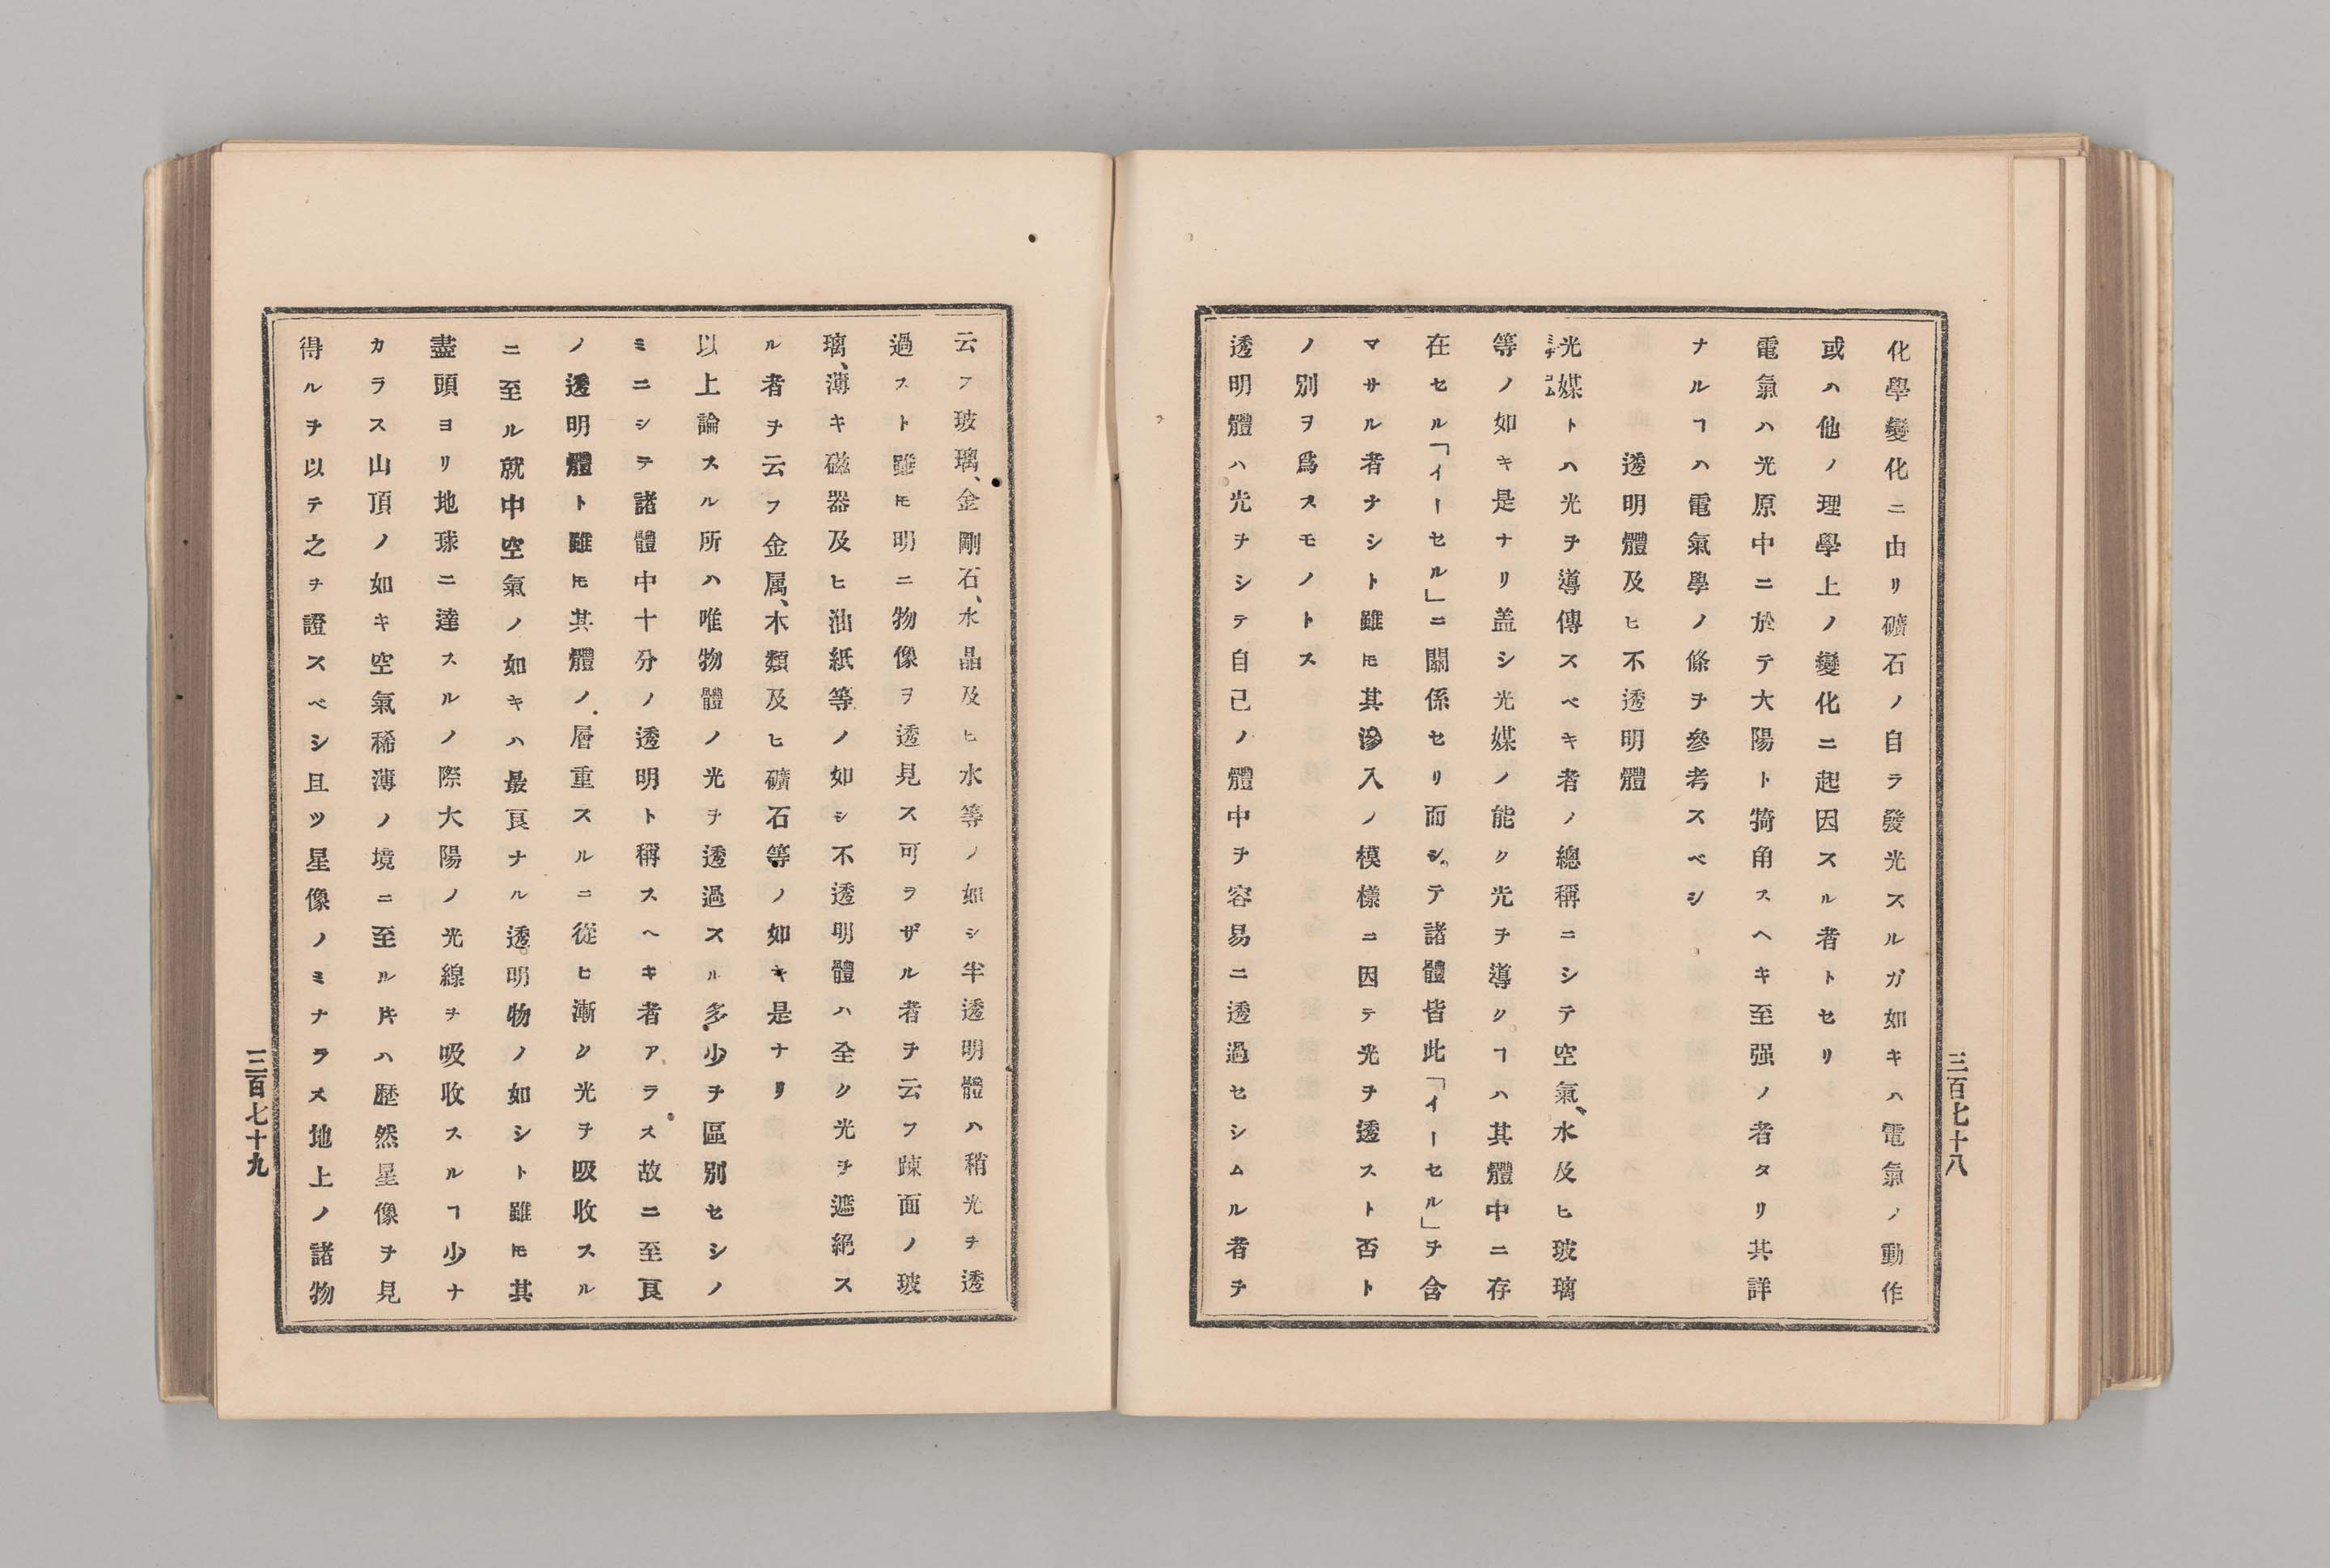 化學變化ニ由リ礦石ノ自ラ發光スルガ如キハ電氣ノ動作
或ハ他ノ理學上ノ變化ニ起因スル者トセリ
電氣ハ光原中ニ於テ大陽ト犄角スヘキ至强ノ者タリ其詳
ナルヿハ電氣學ノ條ヲ參考スベシ
透明體及ヒ不透明體
光媒トハ光ヲ導傳スベキ者ノ總稱ニシテ空氣、水及ヒ玻璃
等ノ如キ是ナリ盖シ光媒ノ能ク光ヲ導クヿハ其體中ニ存
在セル「イーセル」ニ關係セリ而シテ諸體皆此「イーセル」ヲ含
マサル者ナシト雖𪜈其滲入ノ模樣ニ因テ光ヲ透スト否ト
ノ別ヲ爲スモノトス
透明體ハ光ヲシテ自己ノ體中ヲ容易ニ透過セシムル者ヲ
三百七十八
云フ玻璃、金剛石、水晶及ヒ水等ノ如シ半透明體ハ稍光ヲ透
過スト雖𪜈明ニ物像ヲ透見ス可ラザル者ヲ云フ踈面ノ玻
璃、薄キ磁器及ヒ油紙等ノ如シ不透明體ハ全ク光ヲ遮絕ス
ル者ヲ云フ金属、木類及ヒ礦石等ノ如キ是ナリ
以上論スル所ハ唯物體ノ光ヲ透過スル多少ヲ區別セシノ
ミニシテ諸體中十分ノ透明ト稱スヘキ者アラス故ニ至良
ノ透明體ト雖𪜈其體ノ層重スルニ從ヒ漸ク光ヲ吸收スル
ニ至ル就中空氣ノ如キハ最良ナル透明物ノ如シト雖𪜈其
盡頭ヨリ地球ニ達スルノ際大陽ノ光線ヲ吸收スルヿ少ナ
カラス山頂ノ如キ空氣稀薄ノ境ニ至ル𪜈ハ歷然星像ヲ見
得ルヲ以テ之ヲ證スベシ且ツ星像ノミナラス地上ノ諸物
三百七十九